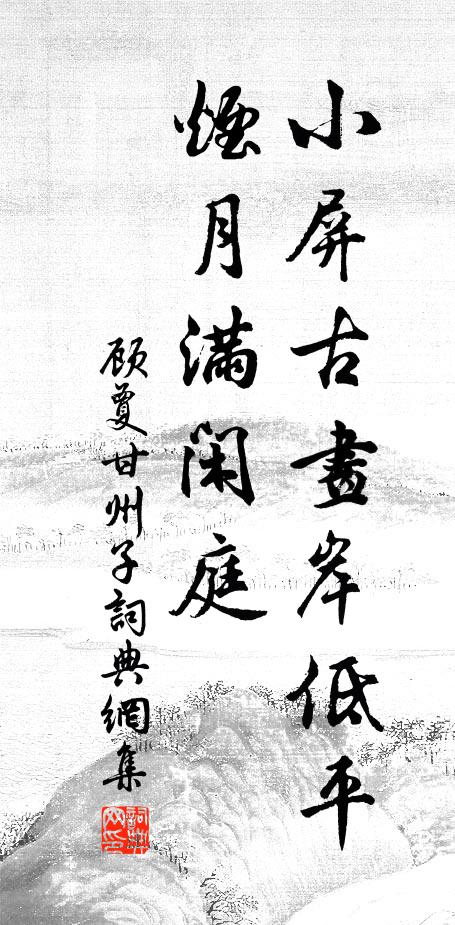 小屏古畫岸低平
煙月滿閑庭
顧夐甘州子詞典網集